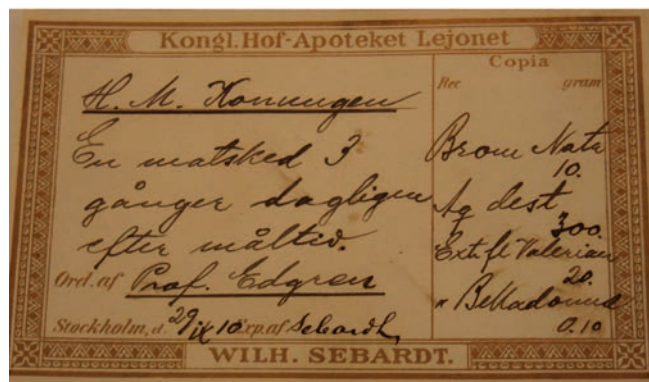 Kongl. Hof-Apoteket Lejonet
H. M. Konungen
En matsked 3
gånger dagligen
efter måltid.
Ord. af Prof. Edgren
Stockholm, d. 29/IX 10 Exp. af Sebardt
Copia
Rec gram
Brom Natr
10.
Aq dest
300.
Ext. fl Valerian
20.
" Belladonna
0.10
WILH. SEBARDT.